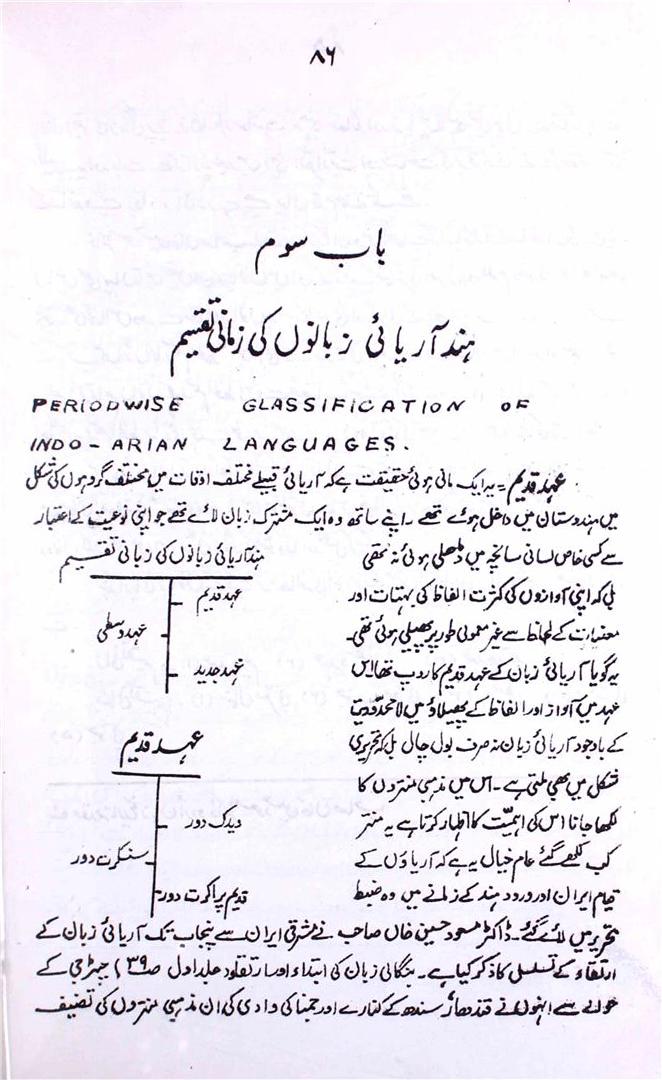 ۸۶
باب سوم
ہند آریائی زبانوں کی زمانی تقسیم
PERIODWISE GLASSIFICATION OF
INDO - ARIAN LANGUAGES.
عہد قدیم = یہ ایک مانی ہوئی حقیقت ہے کہ آریائی قبیلے مختلف اوقات میں مختلف گروہوں کی شکل
میں ہندوستان میں داخل ہوئے تھے۔ اپنے ساتھ وہ ایک مشترک زبان لائے تھے جو اپنی نوعیت کے اعتبار
سے کسی خاص لسانی سانچہ میں ڈھلی ہوئی نہ تھی
بل کہ اپنی آوازوں کی کثرت الفاظ کی بہتات اور
معنیات کے لحاظ سے غیر معمولی طور پر پھیلی ہوئی تھی۔
یہ گویا آریائی زبان کے عہد قدیم کا روپ تھا اس
عہد میں آواز اور الفاظ کے پھیلاؤ میں لامحدودیت
کے باوجود آریائی زبان نہ صرف بول چال بل کہ تحریری
شکل میں بھی ملتی ہے۔ اس میں مذہبی منتروں کا
لکھا جانا اس کی اہمیت کا اظہار کرتا ہے یہ منتر
کب لکھے گئے عام خیال یہ ہے کہ آریاؤں کے
قیام ایران اور ورود ہند کے زمانے میں وہ ضبط
ہند آریائی زبانوں کی زمانی تقسیم
عہد قدیم
عہد وسطی
عہد جدید
عہد قدیم
ویدک دور
سنسکرت دور
قدیم پراکرت دور
تحریر میں لائے گئے۔ ڈاکٹر مسعود حسین خاں صاحب نے مشرقی ایران سے پنجاب تک آریائی زبان کے
ارتقاء کے تسلسل کا ذکر کیا ہے۔ بنگالی زبان کی ابتداء اور ارتقاء جلد اول ص ۳۹) چٹرجی کے
حوالے سے انہوں نے قندھار سندھ کے کنارے اور جمنا کی وادی کی ان مذہبی منتروں کی تصنیف